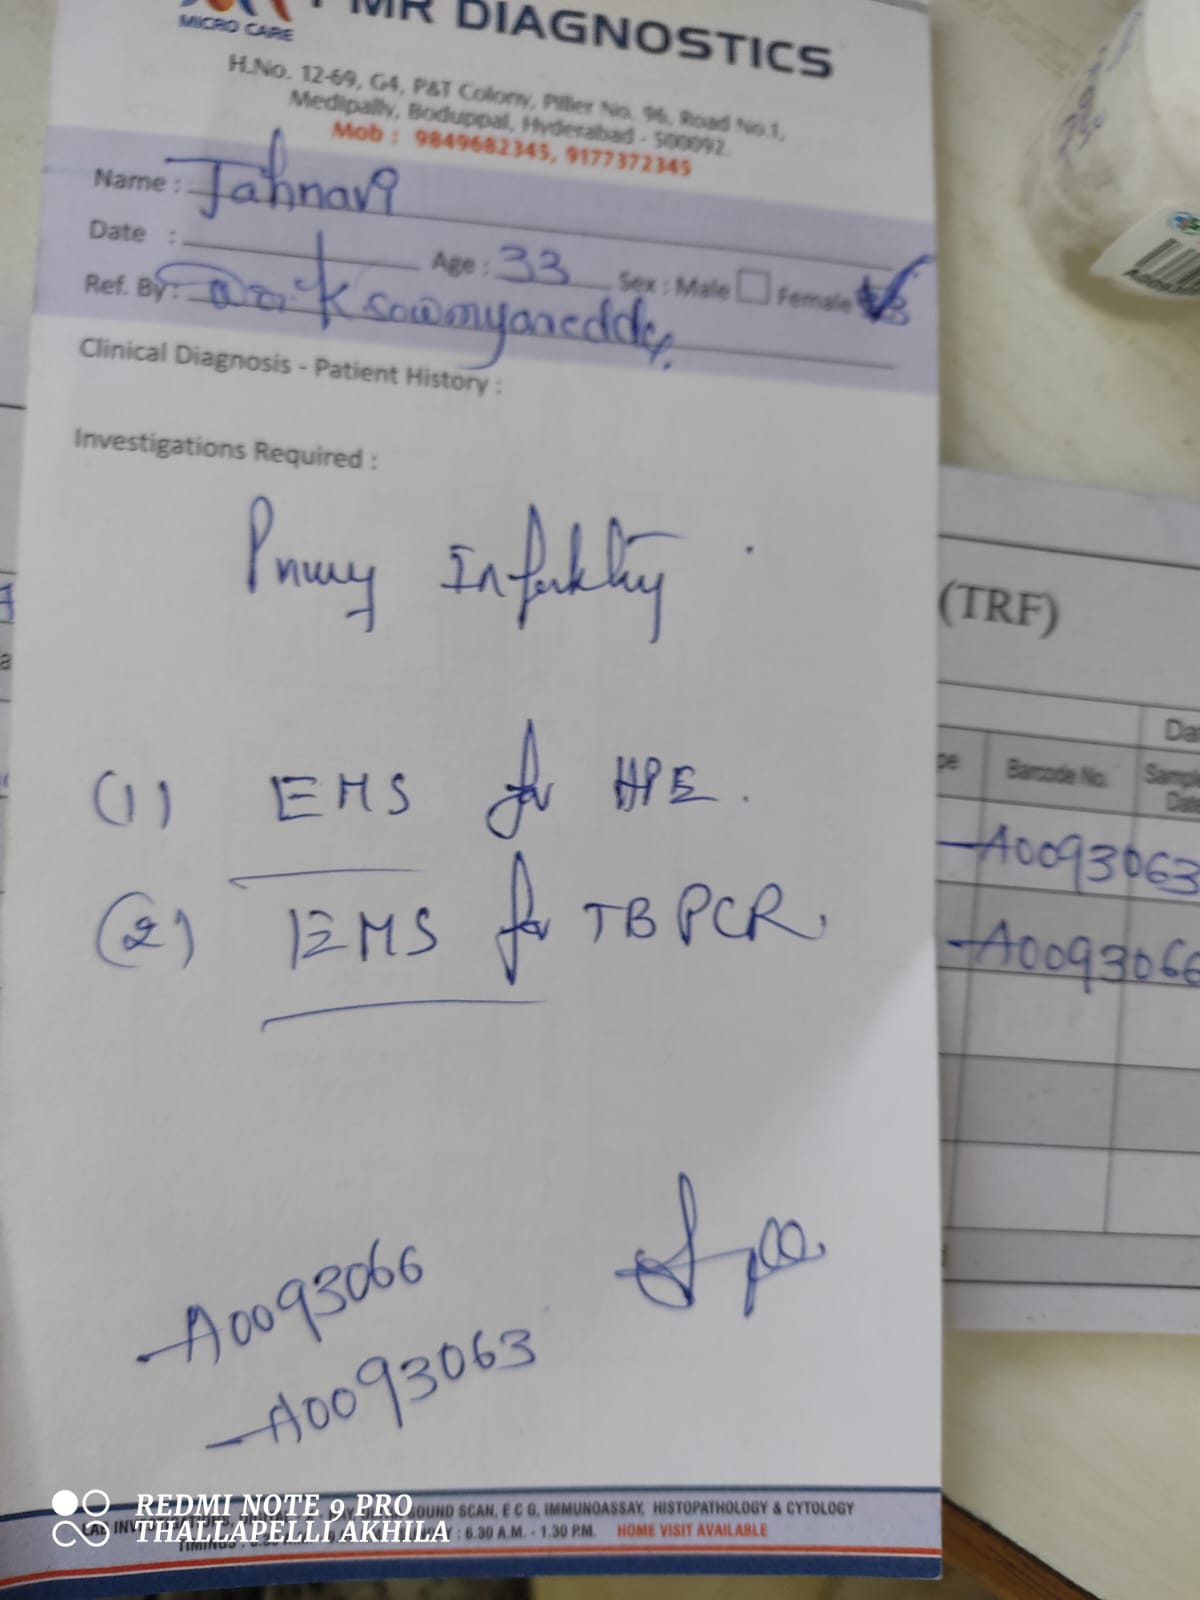 MICRO CARE
PMR DIAGNOSTICS
H.No. 12-69, G4, P&T Colony, Piller No. 96, Road No.1,
Medipally, Boduppal, Hyderabad - 500092.
Mob : 9849682345, 9177372345
Name : Jahnavi
Date : Age : 33 Sex : Male Female
Ref. By : Dr. K sowmyareddy.
Clinical Diagnosis - Patient History :
Investigations Required :
(1) EMS for HPE.
(2) EMS for TB PCR.
A0093066
A0093063
(TRF)
Barcode No.
A0093063
A0093066
SOUND SCAN, E C G, IMMUNOASSAY, HISTOPATHOLOGY & CYTOLOGY
: 6.30 A.M. - 1.30 P.M. HOME VISIT AVAILABLE
REDMI NOTE 9 PRO
THALLAPELLI AKHILA